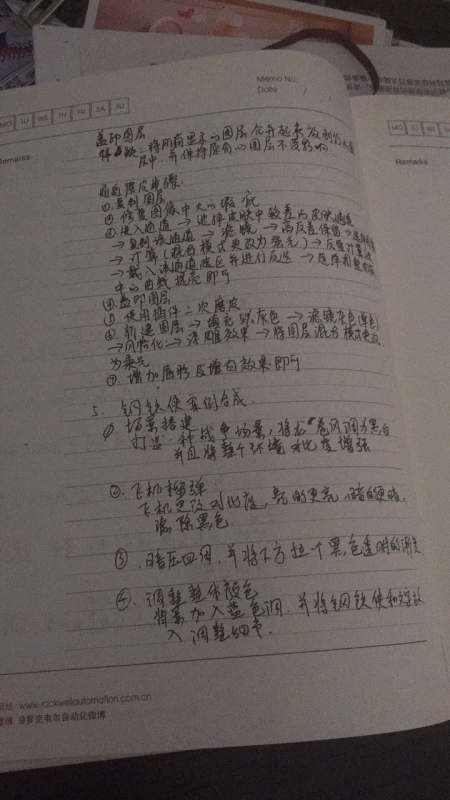 Memo No.
Date / /
MO TU WE TH FR SA SU
Remarks
盖印图层
将所有显示的图层合并起来放到
层中,并保持原有的图层不受影响
磨皮步骤
①复制图层
②修复图像中大的瑕疵
③进入通道→选择皮肤中较差的
→复制该通道→滤镜→高反差保留→
→计算(混合模式更改为强光)→反复计算
→载入该通道选区并进行反选→选择
中心曲线提亮即可
④盖印图层
⑤使用插件二次磨皮
⑥新建图层→填充50%灰色→滤镜
→风格化→浮雕效果→将图层混合模式更改
为柔光
⑦增加唇彩及增白效果即可
5、钢铁侠案例合成
①场景搭建
打造一种战争场景,将龙卷风调为黑白
并且将整个环境对比度增强
②飞机榴弹
飞机更改对比度,亮的更亮,暗的更暗,
滤除黑色
③暗压四周,并将下方拉一个黑色透明的渐变
④调整整体颜色
加入蓝色调,并将钢铁侠和
入调整细节.
MO TU WE
Remarks
网址:www.rockwellautomation.com.cn
微博:@罗克韦尔自动化微博